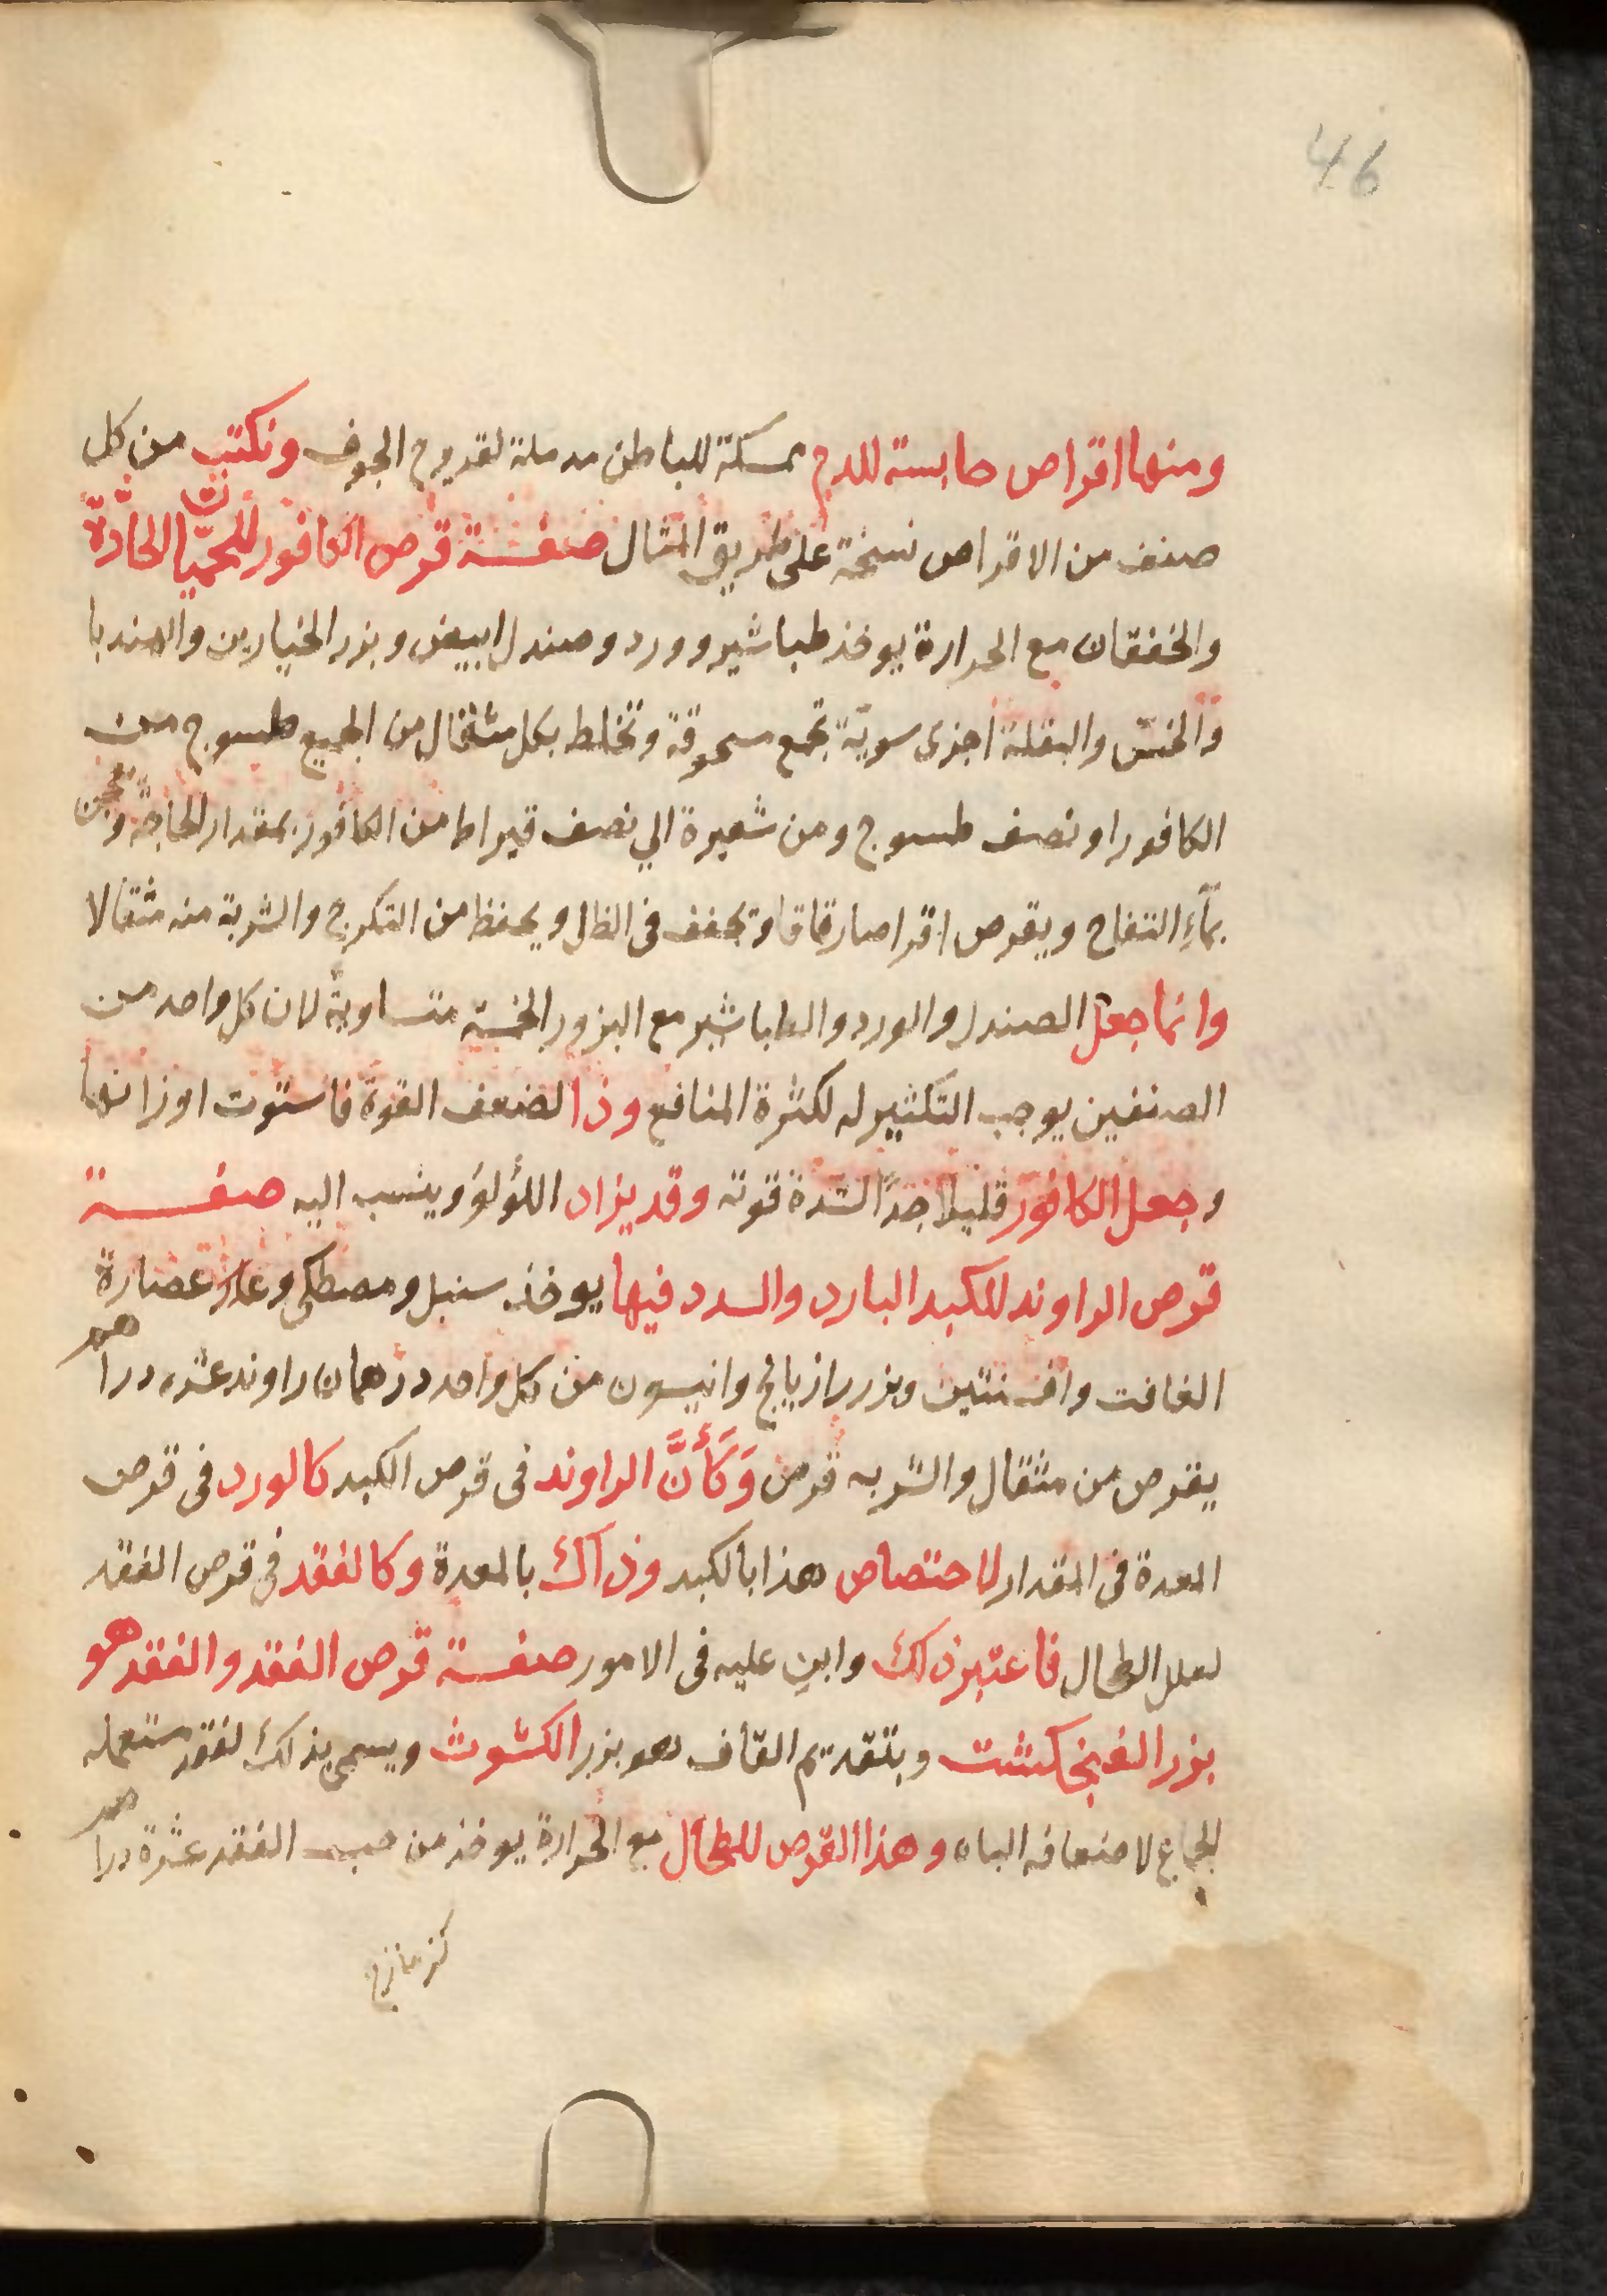 46
ومنها اقراص حابسة للدم ممسكة للباطن مدملة لقروح الجوف ونكتب من كل
صنف من الاقراص نسخة على طريق المثال صفة قرص الكافور للحميّات الحادّة
والخفقان مع الحرارة يوخذ طباشير وورد وصندل ابيض وبزر الخيارين والهندبا
والخسّ والبقلة اجزى سويّة تجمع مسحوقة وتخلط بكل مثقال من الجميع طسوج من
الكافور او نصف طسوج ومن شعيرة الي نصف قيراط من الكافور بمقدار الحاجة وتعجن
بمآءِ التفاح ويقرص اقراصا رقاقا وتجفف فى الظل ويحفظ من التكرج والشربة منه مثقالا
وانما جعل الصندل والورد والطباشير مع البزور الخمسة متساويةً لان كل واحد من
الصنفين يوجب التكثير له لكثرة المنافع وذا لضعف القوة فاستوت اوزانها
وجعل الكافور قليلا جدًا لشدة قوته وقد يزاد اللؤلؤ وينسب اليه صفة
قرص الراوند للكبد البارد والسدد فيها يوخذ سنبل ومصطكى وعصارة
الغافت وافسنتين وبزر رازيانج وانيسون من كل واحد درهمان راوند عشره دراهم
يقرص من مثقال والشربه قرص وَكَأَنَّ الراوند فى قرص الكبد كالورد فى قرص
المعدة فى المقدار لاختصاص هذا بالكبد وذاك بالمعدة وكالفقد فى قرص الفقد
لعلل الطحال فاعتبر ذلك وابنِ عليه فى الامور صفة قرص الفقد والفقد هو
بزر الفنجكشت وبتقديم القاف هو بزر الكشوث ويسمى بذلك لفقد مستعمله
الجماع لاضعافه الباه وهذا القرص للطحال مع الحرارة يوخذ من حب الفقد عشرة دراهم
كزمازج